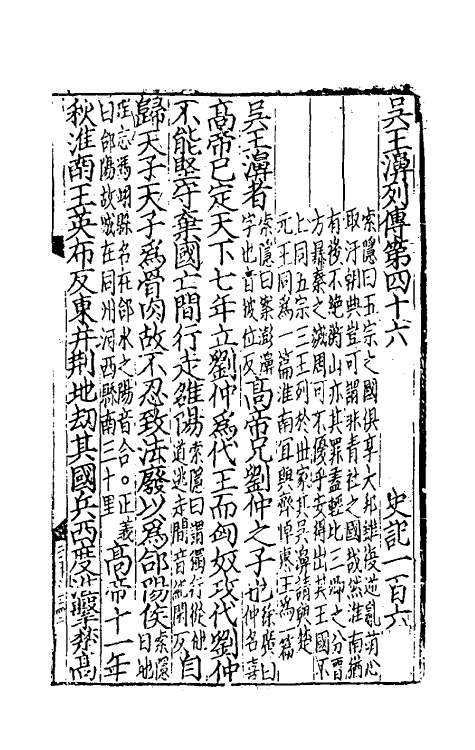 吳王濞列傳第四十六　史記一百六
索隱曰五宗之國俱享大邦雖復逆亂萌心
取汙朝典豈可謂非青社之國哉然淮南猶
有後不絕衡山亦其罪蓋輕比三卿之分晉
方暴秦之滅周可不優乎安得出其王國不
上同五宗三王列於世家其吳濞請與楚
元王同為一篇淮南宜與齊悼惠王為一篇
吳王濞者索隱曰案澎濞字也音披位反高帝兄劉仲之子也徐廣曰仲名喜
高帝已定天下七年立劉仲為代王而匈奴攻代劉仲
不能堅守棄國亡間行走雒陽索隱曰謂獨行從他道逃走間音紀閑反自
歸天子天子為骨肉故不忍致法廢以為郃陽侯索隱曰地
理志馮翊縣名在郃水之陽音合。正義曰郃陽故城在同州河西縣南三十里高帝十一年
秋淮南王英布反東并荊地劫其國兵西度淮擊楚高